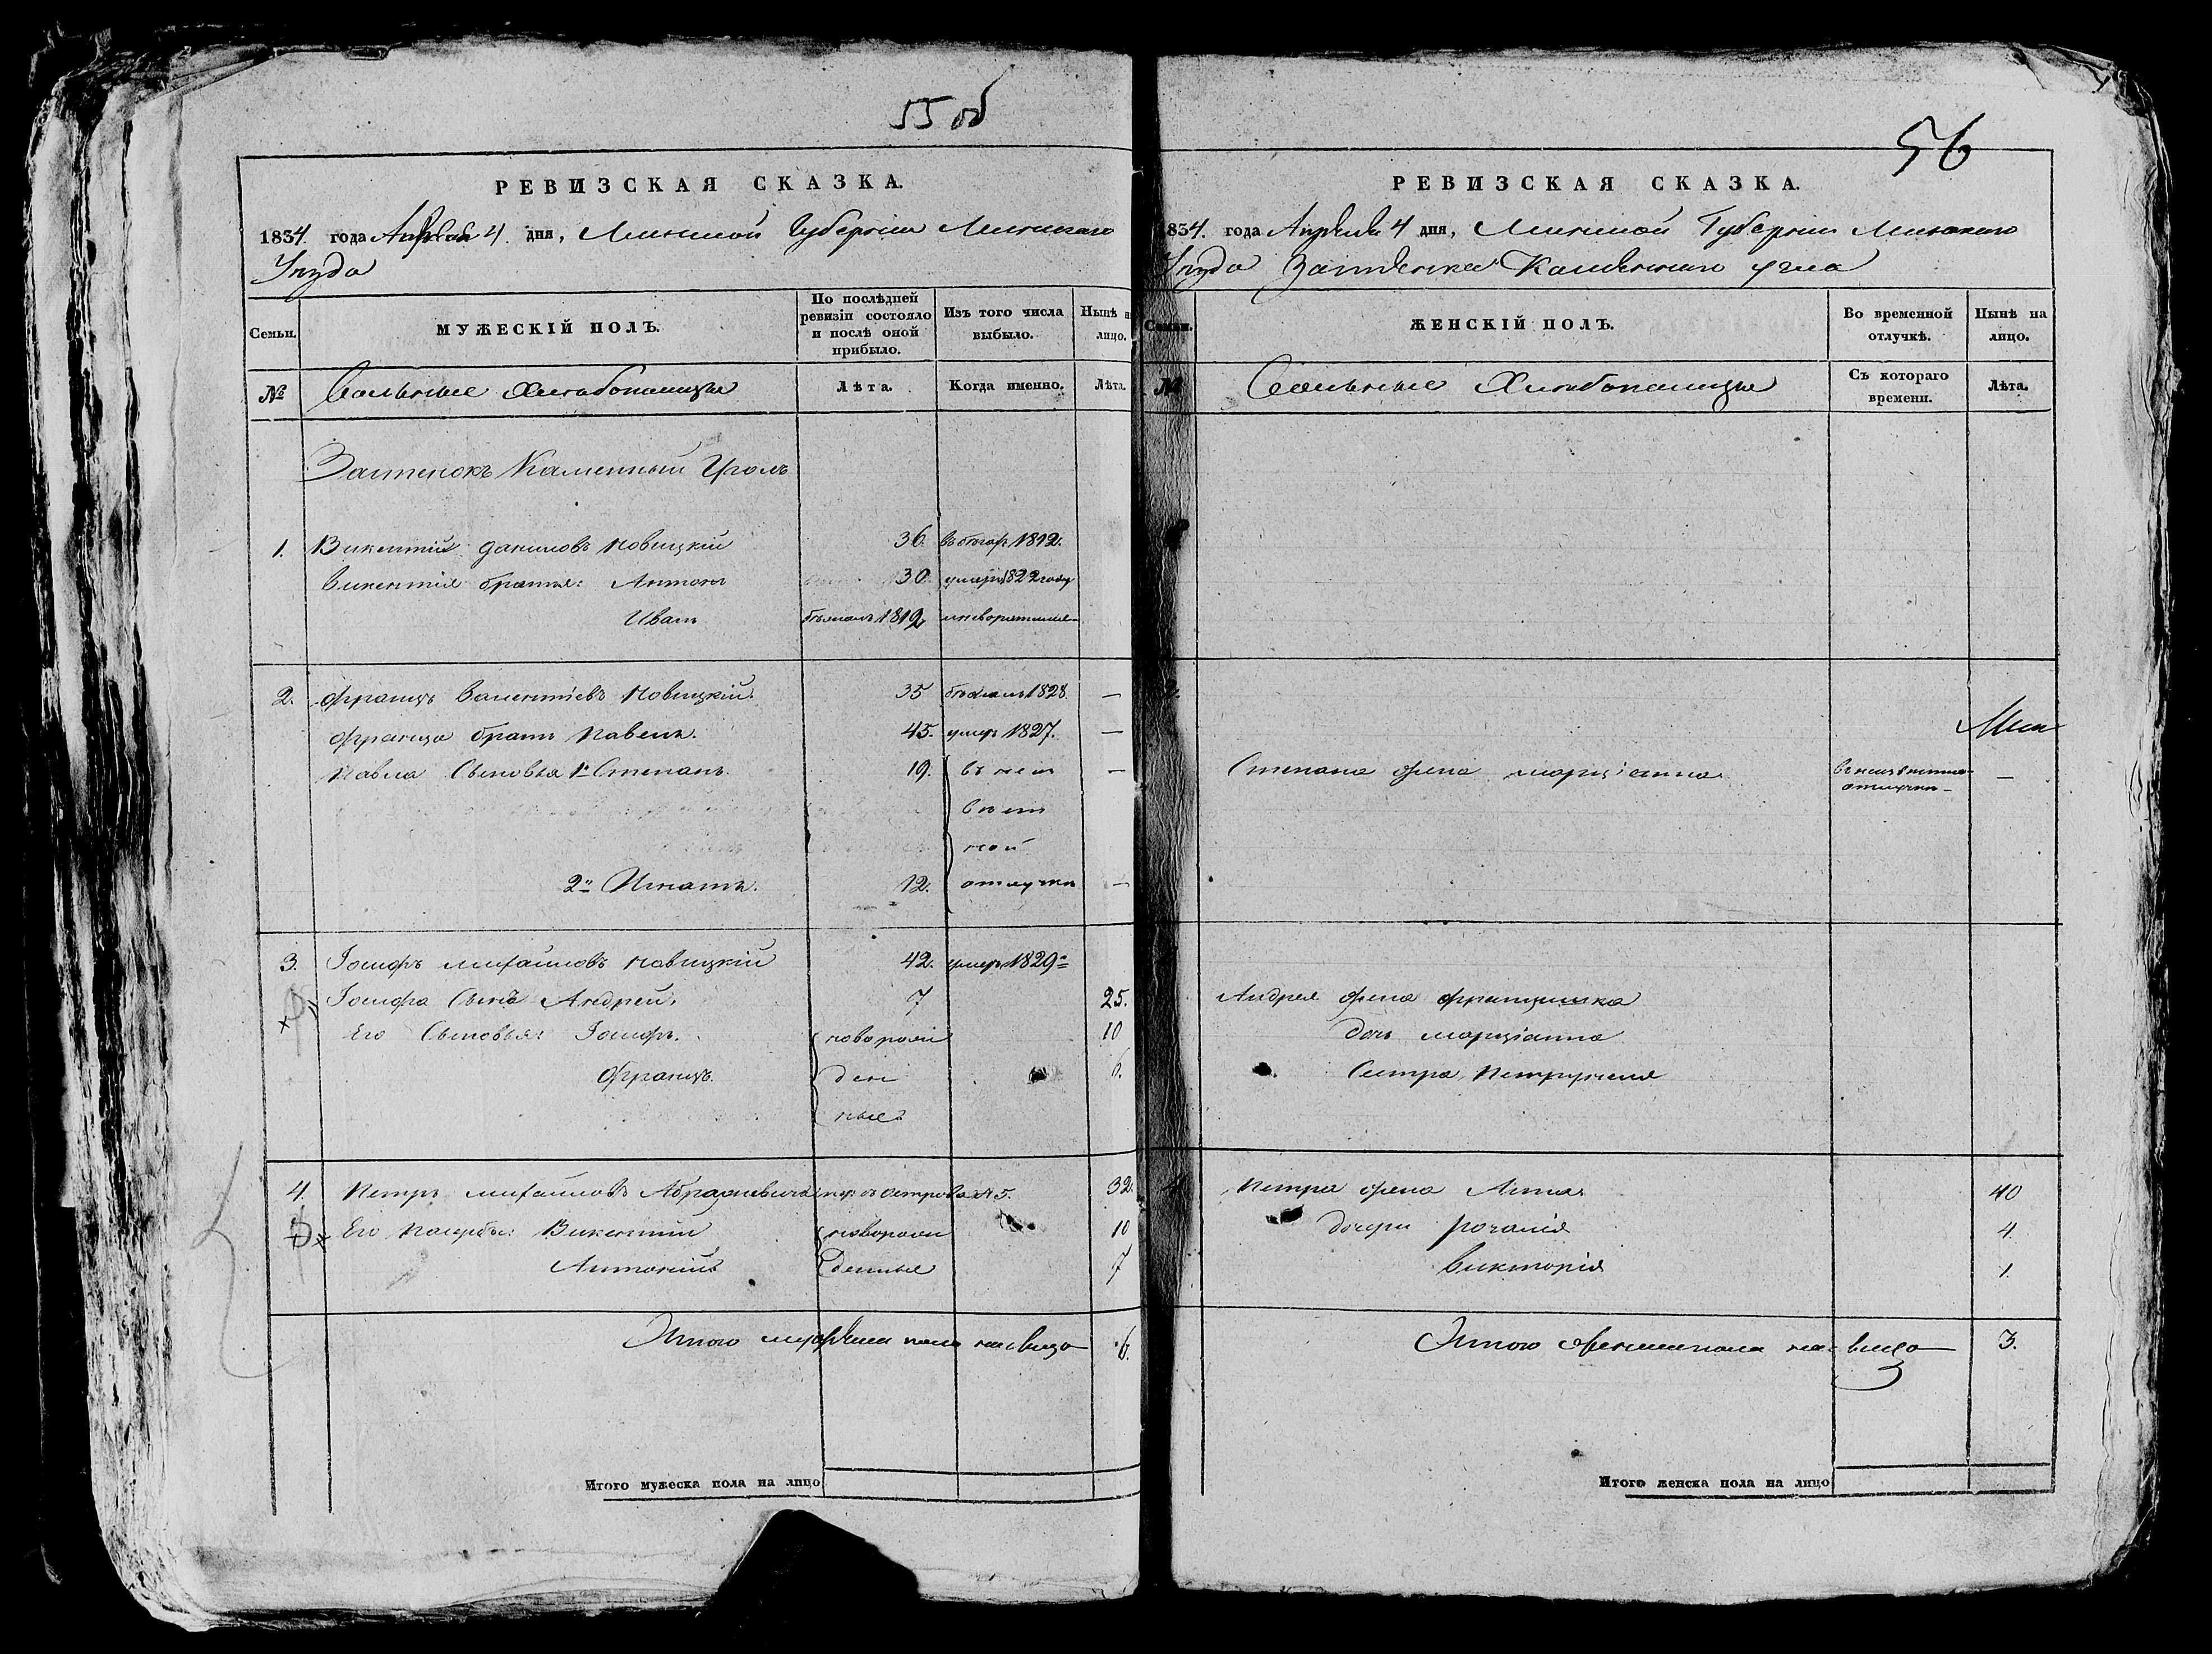 55 об
РЕВИЗСКАЯ СКАЗКА.
1834. года Апреля 4. дня, Минской Губернии Минского
Уезда
Семьи. МУЖЕСКІЙ ПОЛЪ. По послѣдней ревизіи состояло и послѣ оной прибыло. Изъ того числа выбыло. Нынѣ на лицо.
№ Вольные Хлебопашцы Лѣта. Когда именно. Лѣта.
Застенокъ Каменный Уголъ
1. Викентій Даниловъ Новицкій 36. 1812.
Викентія братья: Антонъ 30. умеръ 1822 году
Иванъ 1812
2. Францъ Валентіевъ Новицкій. 35 бежалъ 1828. —
Франца братъ Павелъ. 45. умеръ 1827. —
Павла Сыновья 1й Степанъ. 19. въ неиз —
вест
ной
2й Игнатъ. 12. отлучке —
3. Іосифъ Михайловъ Новицкій 42. умеръ 1829го
Іосифа Сынъ Андрей. 7 25.
Его Сыновья: Іосифъ. новорож 10
Францъ. ден 6.
ные
4. Петръ Михайловъ № 5. 32.
Его Викентій новорож 10
Антоній денные 7
Итого мужеска пола на лицо 6.
Итого мужеска пола на лицо
56
РЕВИЗСКАЯ СКАЗКА.
1834. года Апреля 4 дня, Минской Губернии Минского
Уезда Застенка Каменного угла
Семьи. ЖЕНСКІЙ ПОЛЪ. Во временной отлучкѣ. Нынѣ на лицо.
№ Вольные Хлебопашцы Съ котораго времени. Лѣта.
2.
Степана жена Марціанна въ неизвестной отлучке —
Андрея жена Францишка
дочь Марціанна
Сестра Петрунеля
4. Петра жена Анна 40
дочери Розалія 4
Викторія 1.
Итого женска пола на лицо 3.
Итого женска пола на лицо